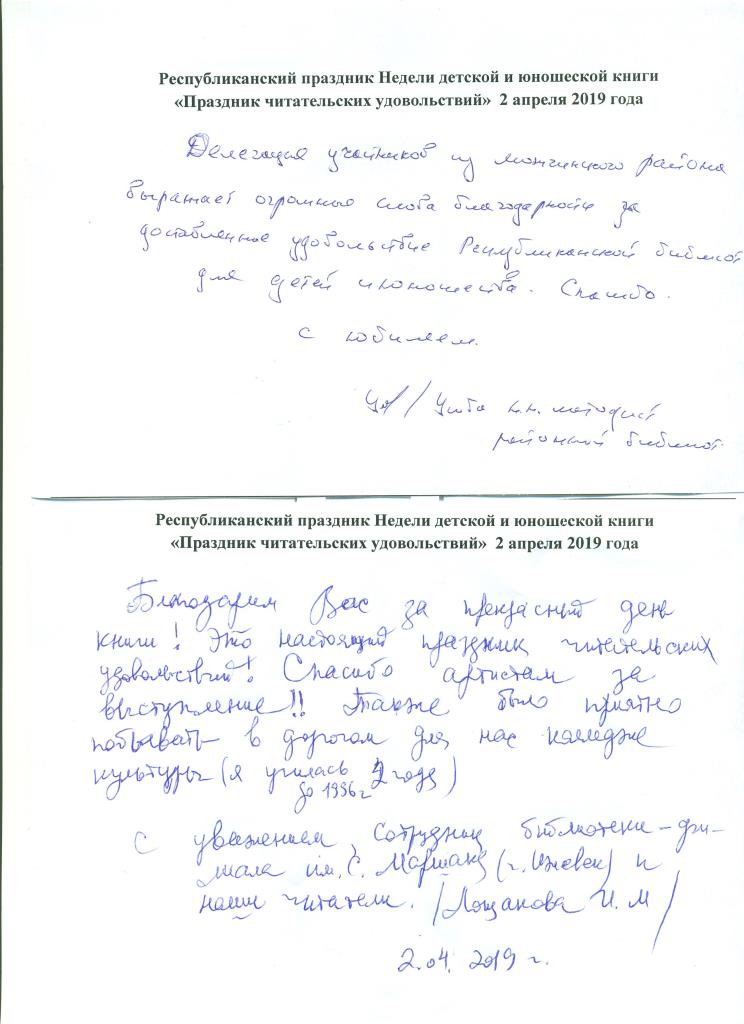 Республиканский праздник Недели детской и юношеской книги
«Праздник читательских удовольствий» 2 апреля 2019 года
Делегация участников из Можгинского района
выражает огромные слова благодарности за
доставленное удовольствие Республиканской библиот
для детей и юношества. Спасибо.
С юбилеем.
методист
районной библиот.
Республиканский праздник Недели детской и юношеской книги
«Праздник читательских удовольствий» 2 апреля 2019 года
Благодарим Вас за прекрасный день
книги! Это настоящий праздник читательских
удовольствий! Спасибо артистам за
выступление!! Также было приятно
побывать в дорогом для нас колледже
культуры (я училась 2 года)
до 1996 г
С уважением, сотрудник библиотеки-фи-
лиала им. С. Маршака (г. Ижевск) и
наши читатели. /Лощакова И. М/
2.04. 2019 г.